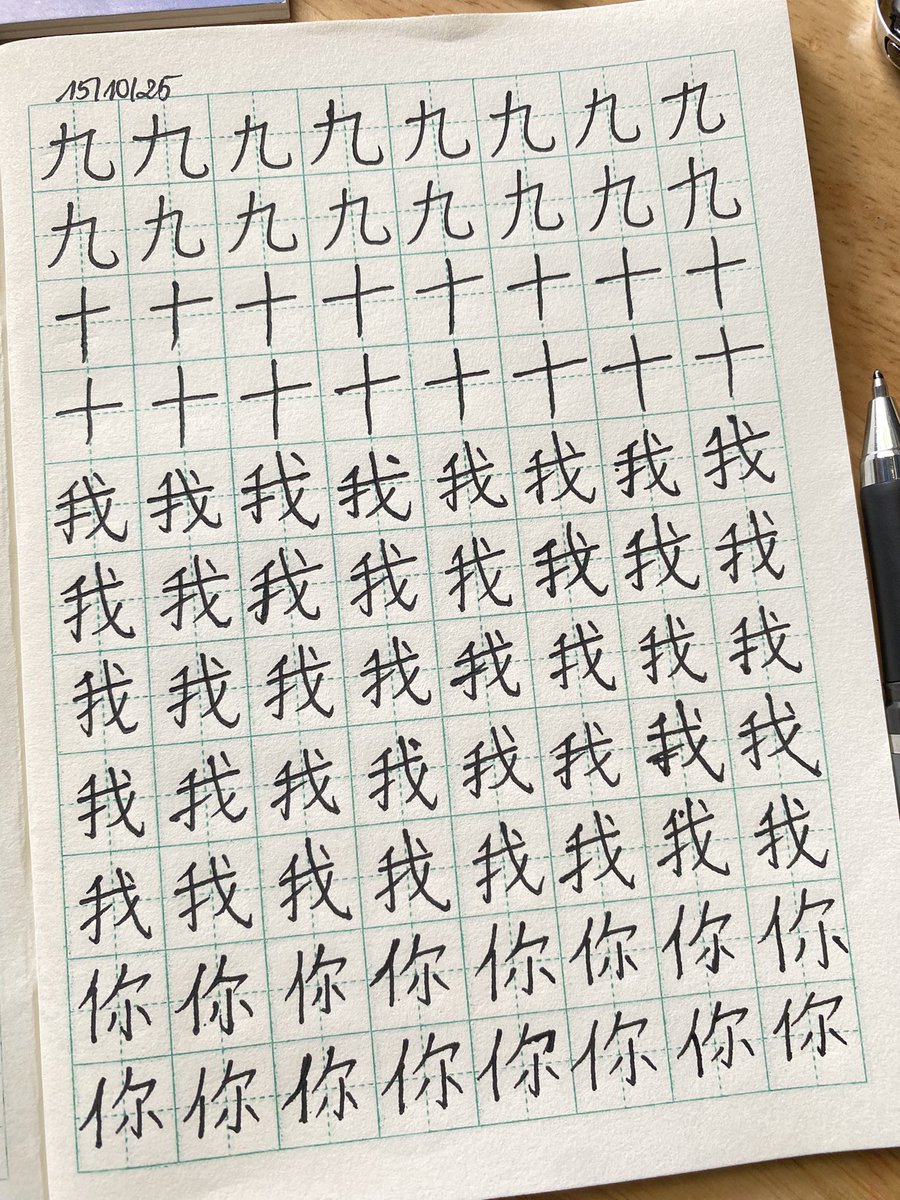 15/10/25
九九九九九九九九
九九九九九九九九
十十十十十十十十
十十十十十十十十
我我我我我我我我
我我我我我我我我
我我我我我我我我
我我我我我我我我
我我我我我我我我
你你你你你你你你
你你你你你你你你